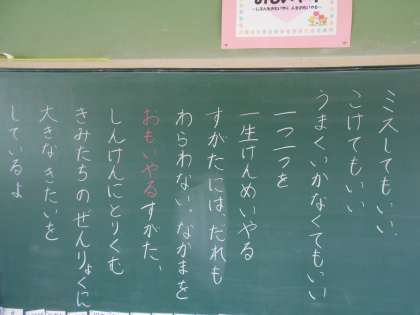 ミスしてもいい、
こけてもいい
うまくいかなくてもいい
一つ一つを
一生けんめいやる
すがたには、だれも
わらわない。なかまを
おもいやるすがた、
しんけんにとりくむ
きみたちのぜんりょくに
大きなきたいを
しているよ